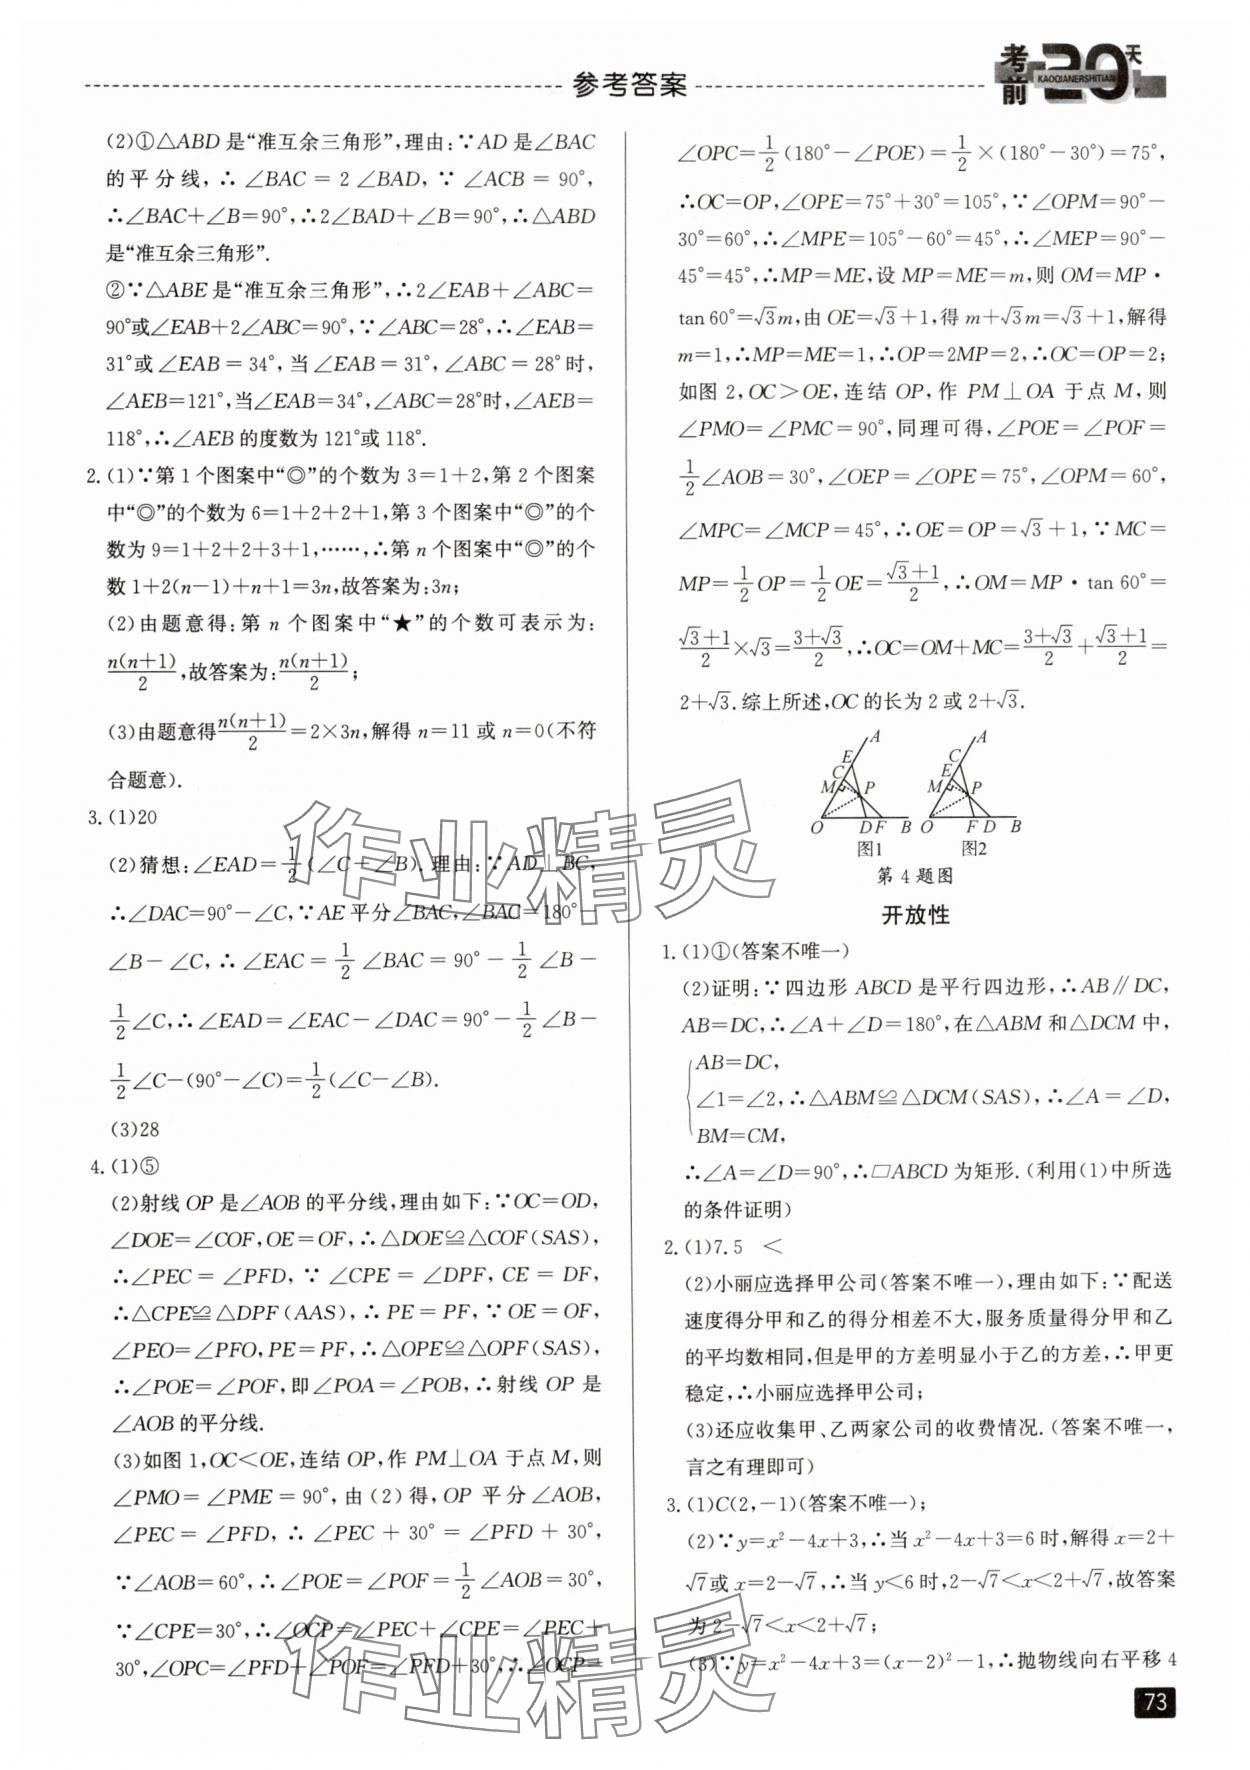 参考答案
考前20天
KAOQIANERSHITIAN
(2)①△ABD 是“准互余三角形”,理由:∵AD 是∠BAC
的平分线,∴∠BAC=2∠BAD,∵∠ACB=90°,
∴∠BAC+∠B=90°,∴2∠BAD+∠B=90°,∴△ABD
是“准互余三角形”.
②∵△ABE 是“准互余三角形”,∴2∠EAB+∠ABC=
90°或∠EAB+2∠ABC=90°,∵∠ABC=28°,∴∠EAB=
31°或∠EAB=34°,当∠EAB=31°,∠ABC=28°时,
∠AEB=121°,当∠EAB=34°,∠ABC=28°时,∠AEB=
118°,∴∠AEB 的度数为 121°或 118°.
2.(1)∵第 1 个图案中“◎”的个数为 3=1+2,第 2 个图案
中“◎”的个数为 6=1+2+2+1,第 3 个图案中“◎”的个
数为 9=1+2+2+3+1,……,∴第 n 个图案中“◎”的个
数 1+2(n-1)+n+1=3n,故答案为:3n;
(2)由题意得:第 n 个图案中“★”的个数可表示为:
n(n+1)/2,故答案为:n(n+1)/2;
(3)由题意得n(n+1)/2=2×3n,解得 n=11 或 n=0(不符
合题意).
3.(1)20
(2)猜想:∠EAD=1/2(∠C-∠B).理由:∵AD⊥BC,
∴∠DAC=90°-∠C,∵AE 平分∠BAC,∠BAC=180°-
∠B-∠C,∴∠EAC=1/2∠BAC=90°-1/2∠B-
1/2∠C,∴∠EAD=∠EAC-∠DAC=90°-1/2∠B-
1/2∠C-(90°-∠C)=1/2(∠C-∠B).
(3)28
4.(1)⑤
(2)射线 OP 是∠AOB 的平分线,理由如下:∵OC=OD,
∠DOE=∠COF,OE=OF,∴△DOE≌△COF(SAS),
∴∠PEC=∠PFD,∵∠CPE=∠DPF,CE=DF,
∴△CPE≌△DPF(AAS),∴PE=PF,∵OE=OF,
∠PEO=∠PFO,PE=PF,∴△OPE≌△OPF(SAS),
∴∠POE=∠POF,即∠POA=∠POB,∴射线 OP 是
∠AOB 的平分线.
(3)如图 1,OC<OE,连结 OP,作 PM⊥OA 于点 M,则
∠PMO=∠PME=90°,由(2)得,OP 平分∠AOB,
∠PEC=∠PFD,∴∠PEC+30°=∠PFD+30°,
∵∠AOB=60°,∴∠POE=∠POF=1/2∠AOB=30°,
∵∠CPE=30°,∴∠OCP=∠PEC+∠CPE=∠PEC+
30°,∠OPC=∠PFD+∠POF=∠PFD+30°,∴∠OCP=
∠OPC=1/2(180°-∠POE)=1/2×(180°-30°)=75°,
∴OC=OP,∠OPE=75°+30°=105°,∵∠OPM=90°-
30°=60°,∴∠MPE=105°-60°=45°,∴∠MEP=90°-
45°=45°,∴MP=ME,设 MP=ME=m,则 OM=MP·
tan 60°=√3m,由 OE=√3+1,得 m+√3m=√3+1,解得
m=1,∴MP=ME=1,∴OP=2MP=2,∴OC=OP=2;
如图 2,OC>OE,连结 OP,作 PM⊥OA 于点 M,则
∠PMO=∠PMC=90°,同理可得,∠POE=∠POF=
1/2∠AOB=30°,∠OEP=∠OPE=75°,∠OPM=60°,
∠MPC=∠MCP=45°,∴OE=OP=√3+1,∵MC=
MP=1/2OP=1/2OE=(√3+1)/2,∴OM=MP·tan 60°=
(√3+1)/2×√3=(3+√3)/2,∴OC=OM+MC=(3+√3)/2+(√3+1)/2=
2+√3.综上所述,OC 的长为 2 或 2+√3.
A E C M P O D F B
图1
A C E M P O F D B
图2
第 4 题图
开放性
1.(1)①(答案不唯一)
(2)证明:∵四边形 ABCD 是平行四边形,∴AB∥DC,
AB=DC,∴∠A+∠D=180°,在△ABM 和△DCM 中,
AB=DC,
∠1=∠2,∴△ABM≌△DCM(SAS),∴∠A=∠D,
BM=CM,
∴∠A=∠D=90°,∴□ABCD 为矩形.(利用(1)中所选
的条件证明)
2.(1)7.5 <
(2)小丽应选择甲公司(答案不唯一),理由如下:∵配送
速度得分甲和乙的得分相差不大,服务质量得分甲和乙
的平均数相同,但是甲的方差明显小于乙的方差,∴甲更
稳定,∴小丽应选择甲公司;
(3)还应收集甲、乙两家公司的收费情况.(答案不唯一,
言之有理即可)
3.(1)C(2,-1)(答案不唯一);
(2)∵y=x²-4x+3,∴当 x²-4x+3=6 时,解得 x=2+
√7或 x=2-√7,∴当 y<6 时,2-√7<x<2+√7,故答案
为 2-√7<x<2+√7;
(3)∵y=x²-4x+3=(x-2)²-1,∴抛物线向右平移 4
73
作业精灵
作业精灵